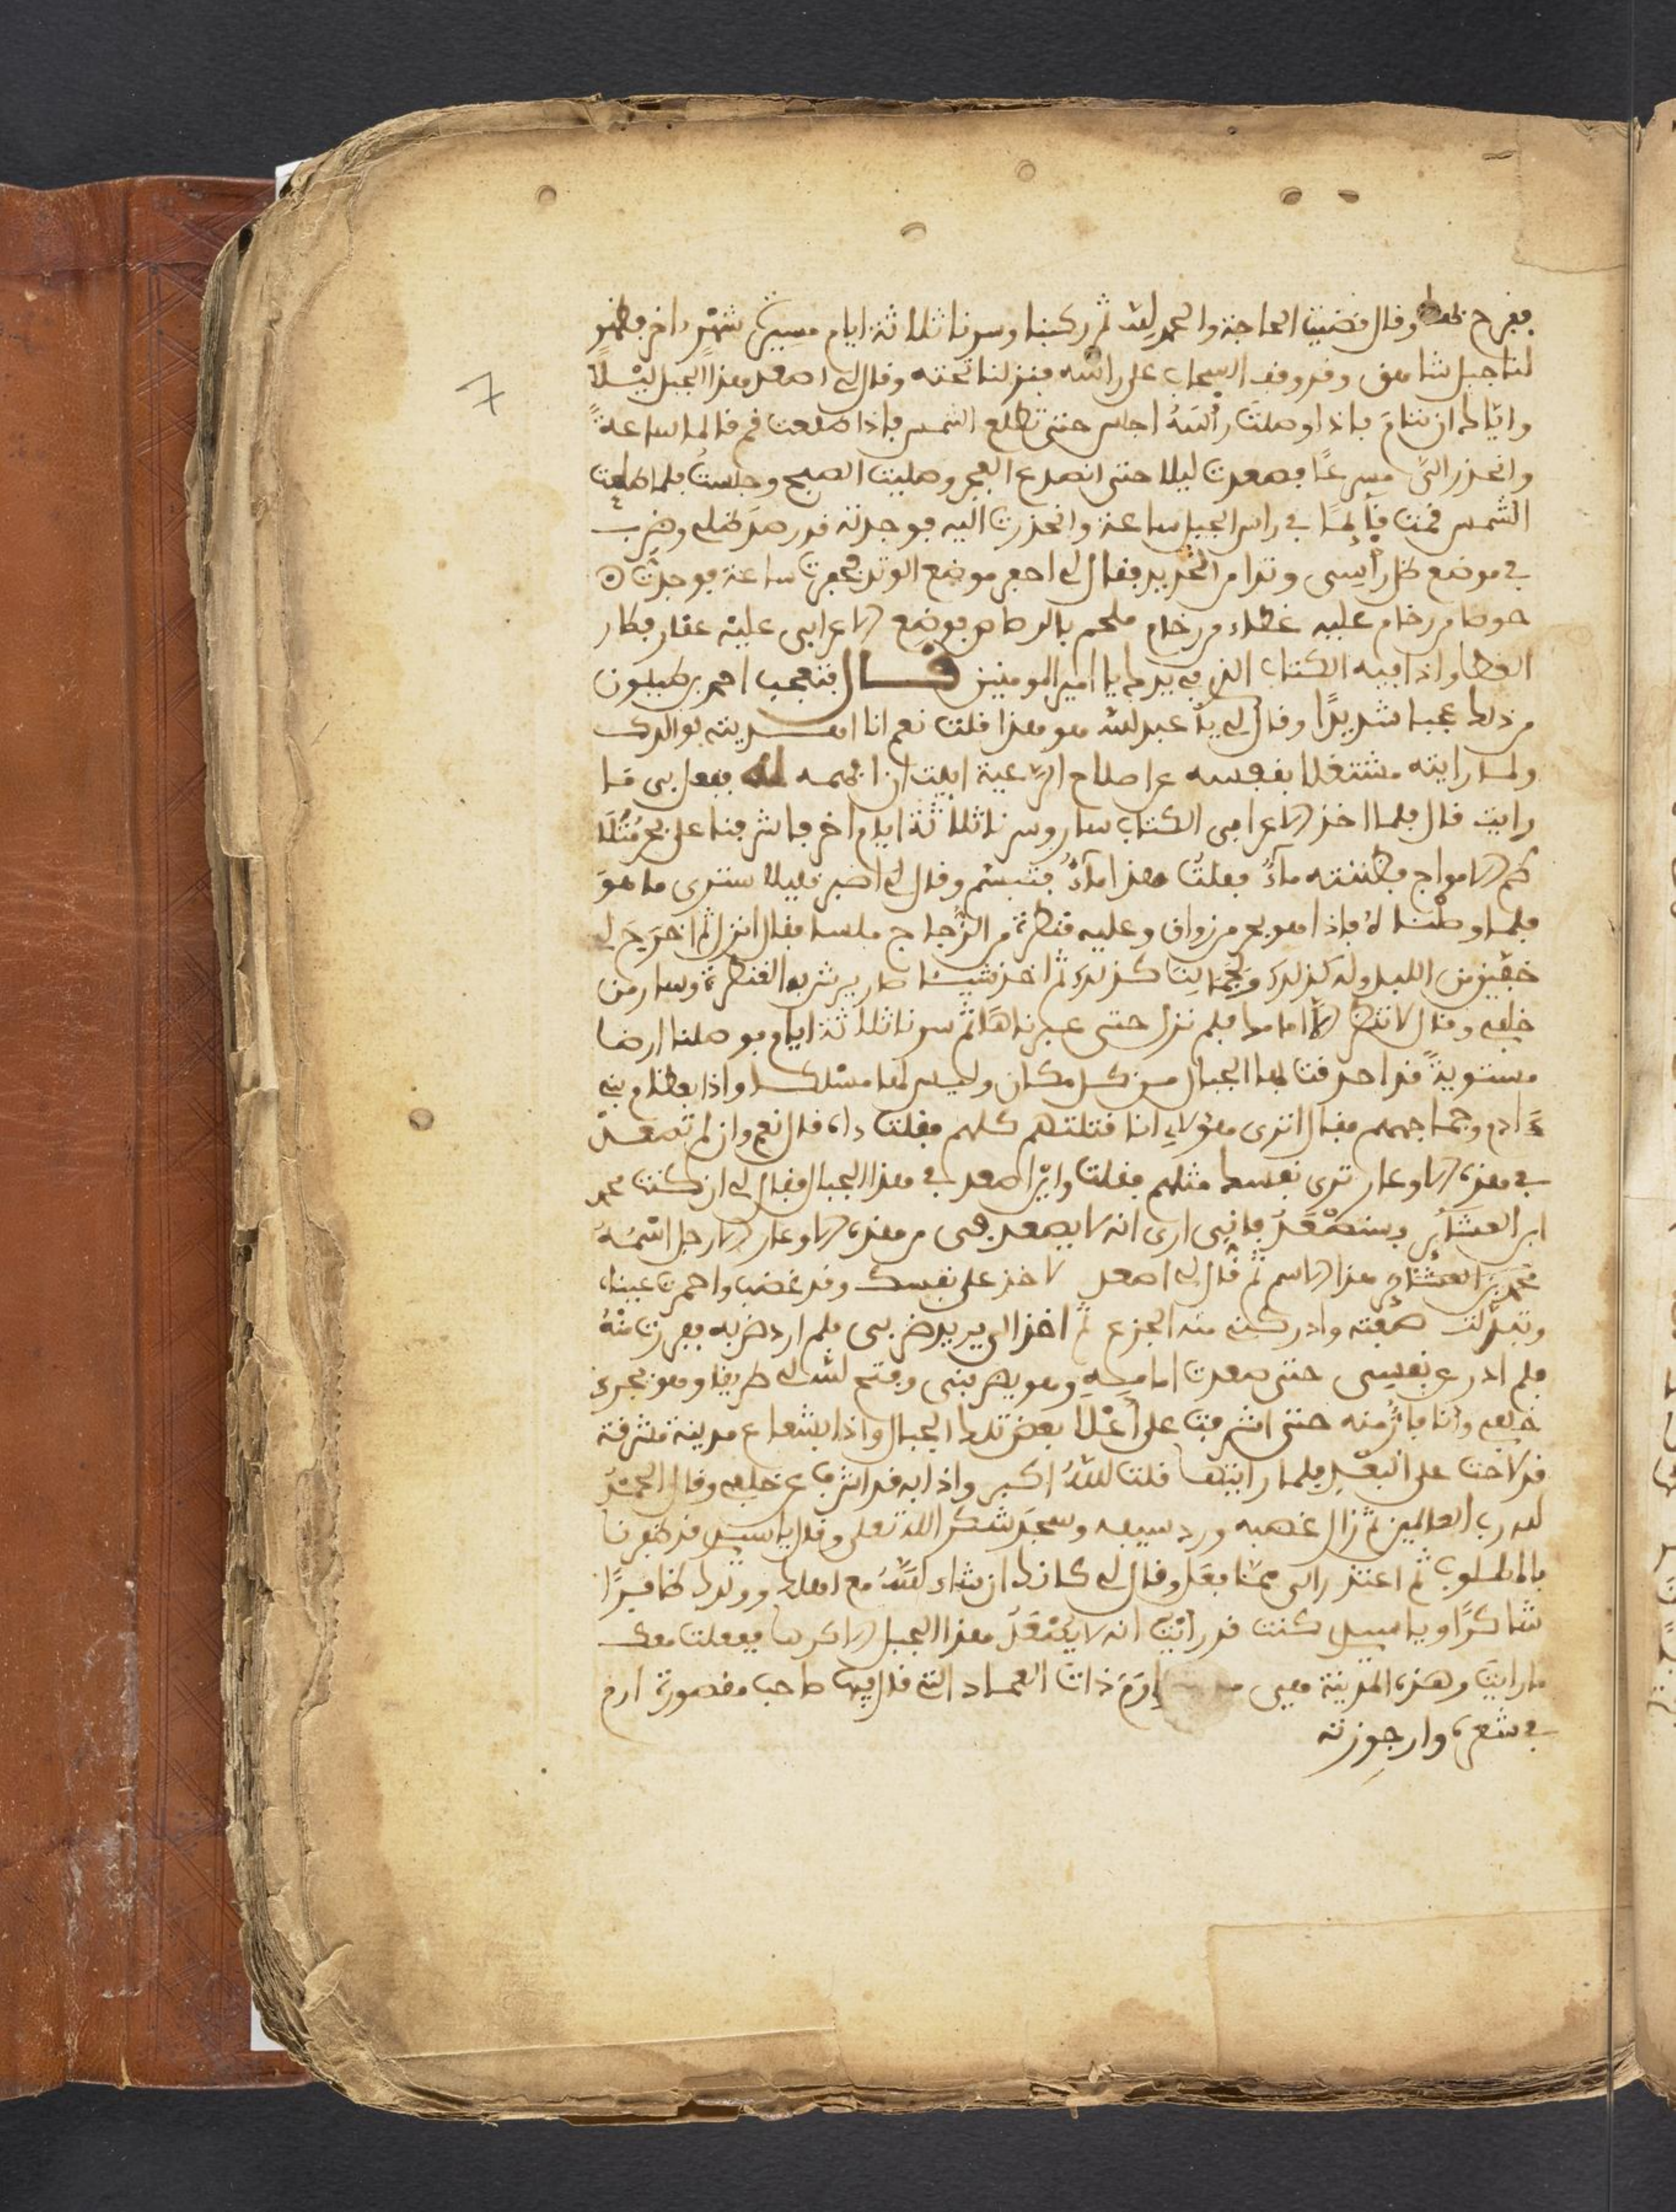 ففرح بذلك وقال قضيت الحاجة والحمد لله ثم ركبنا وسرنا ثلاثة ايام مسيرة شهر اخر فظهر
لنا جبل شاهق وقد وقف السحاب على راسه فنزلنا تحته وقال لي اصعد هذا الجبل ليلًا
واياك ان تنام فاذا وصلت رأسَهُ اجلس حتى تطلع الشمس فاذا طلعت قم قائما ساعةً
وانحدر اليّ مسرعًا فصعدت ليلا حتى انصدع الفجر وصليت الصبح وجلستُ فلما طلعت
الشمس قمت قائمًا في راس الجبل ساعة وانحدرت اليه فوجدته قد رصد ظلي وضرب
في موضع ظل رأسي وتدا من الحديد فقال لي احفر موضع الوتد فحفرت ساعة فوجدتُ
حوضا من رخام عليه غطاء من رخام ملحم بالرصاص فوضع الاعرابي عليه عقار فطار
الغطا واذا فيه الكتاب الذي في يدك يا امير المومنين قــــال فتعجب احمد بن طيلون
من ذلك عجبا شديدًا وقال لي يا عبد الله هو هذا قلت نعم انا اهديته لوالدك
ولما رايته مشتغلا بنفسه عن اصلاح الرعية ابيت ان افهمه له ففعل بي ما
رايت قال فلما اخذ الاعرابي الكتاب سار وسرنا ثلاثة ايام اخر فاشرفنا على بحر مُتَلَا
طم الامواج فظننته ماءً فقلتُ هذا ماءٌ فتبسّم وقال لي اصبر قليلا سترى ما هوَ
فلما وصلنا لهُ فاذا هو بحر من زواق وعليه قنطرة من الزُّجاج ملسا فقال انزل ثم اخرَجَ لي
خفّين من اللبد وله كذلك ولجمالِنَا كذلك ثم اخذ شيئا صار يرش به القنطرة وسار من
خلفي وقال لا تنظر الا امامك فلم نزل حتى عبرناهَا ثم سرنا ثلاثة ايام فوصلنا ارضا
مستويةً قد احدقت بها الجبال من كل مكان وليس لها مسلك واذا بعظام بني
ءادم وجماجمهم فقال اترى هؤلاءِ انا قتلتهم كلهم فقلت ولم قال نعم وان لم تصعد
في هذه الاوعار ترى نفسك مثلهم فقلت واين اصعد في هذا الجبال فقال لي ان كنت محمد
ابن العشائر فستصْعَدُ فإني ارى انه لا يصعد في من هذه الاوعار الا رجل اسْمُهُ
محمد بن العشائر هذا الاسم ثم قال لي اصعد لاخذ على نفسك وقد غضب واحمرت عيناه
وتبدّلت صفته وادركني منه الجزع ثم اخذ الى يريد ضربي فلم ارد ضربه ففررت منْهُ
فلم ادر عن نفسي حتى صعدت امامِهِ وهو يضربني وفتح الله لي طريقا وهو يجري
خلفي وانا فارٌّ منه حتى اشرفت على أعْلا بعض تلك الجبال واذا بشعاع مدينة مشرقة
قد لاحت على البُعْدِ فلما رايتها قلت اللهُ اكبر واذا به قد اشرف من خلفي وقال الحمْدُ
لله رب العالمين ثم زال غضبه ورد سيفه وسجَدَ شكر الله تعلى وقال يا سيدي قد ظفرنا
بالمطلوب ثم اعتذر الي ممّا فعَل وقال لي كانك ان شاء اللّهُ مع اهلك وولدك ظافرًا
شاكرًا ويا سيدي كنت قد رايْت انه لا يصْعَدُ هذا الجبل الا كرها ففعلت معك
ما رايت وهذه المدينة هي إرَمَ ذات العماد التي قال فيها صاحب مقصورة ارم
في شعره وارجوزته
7